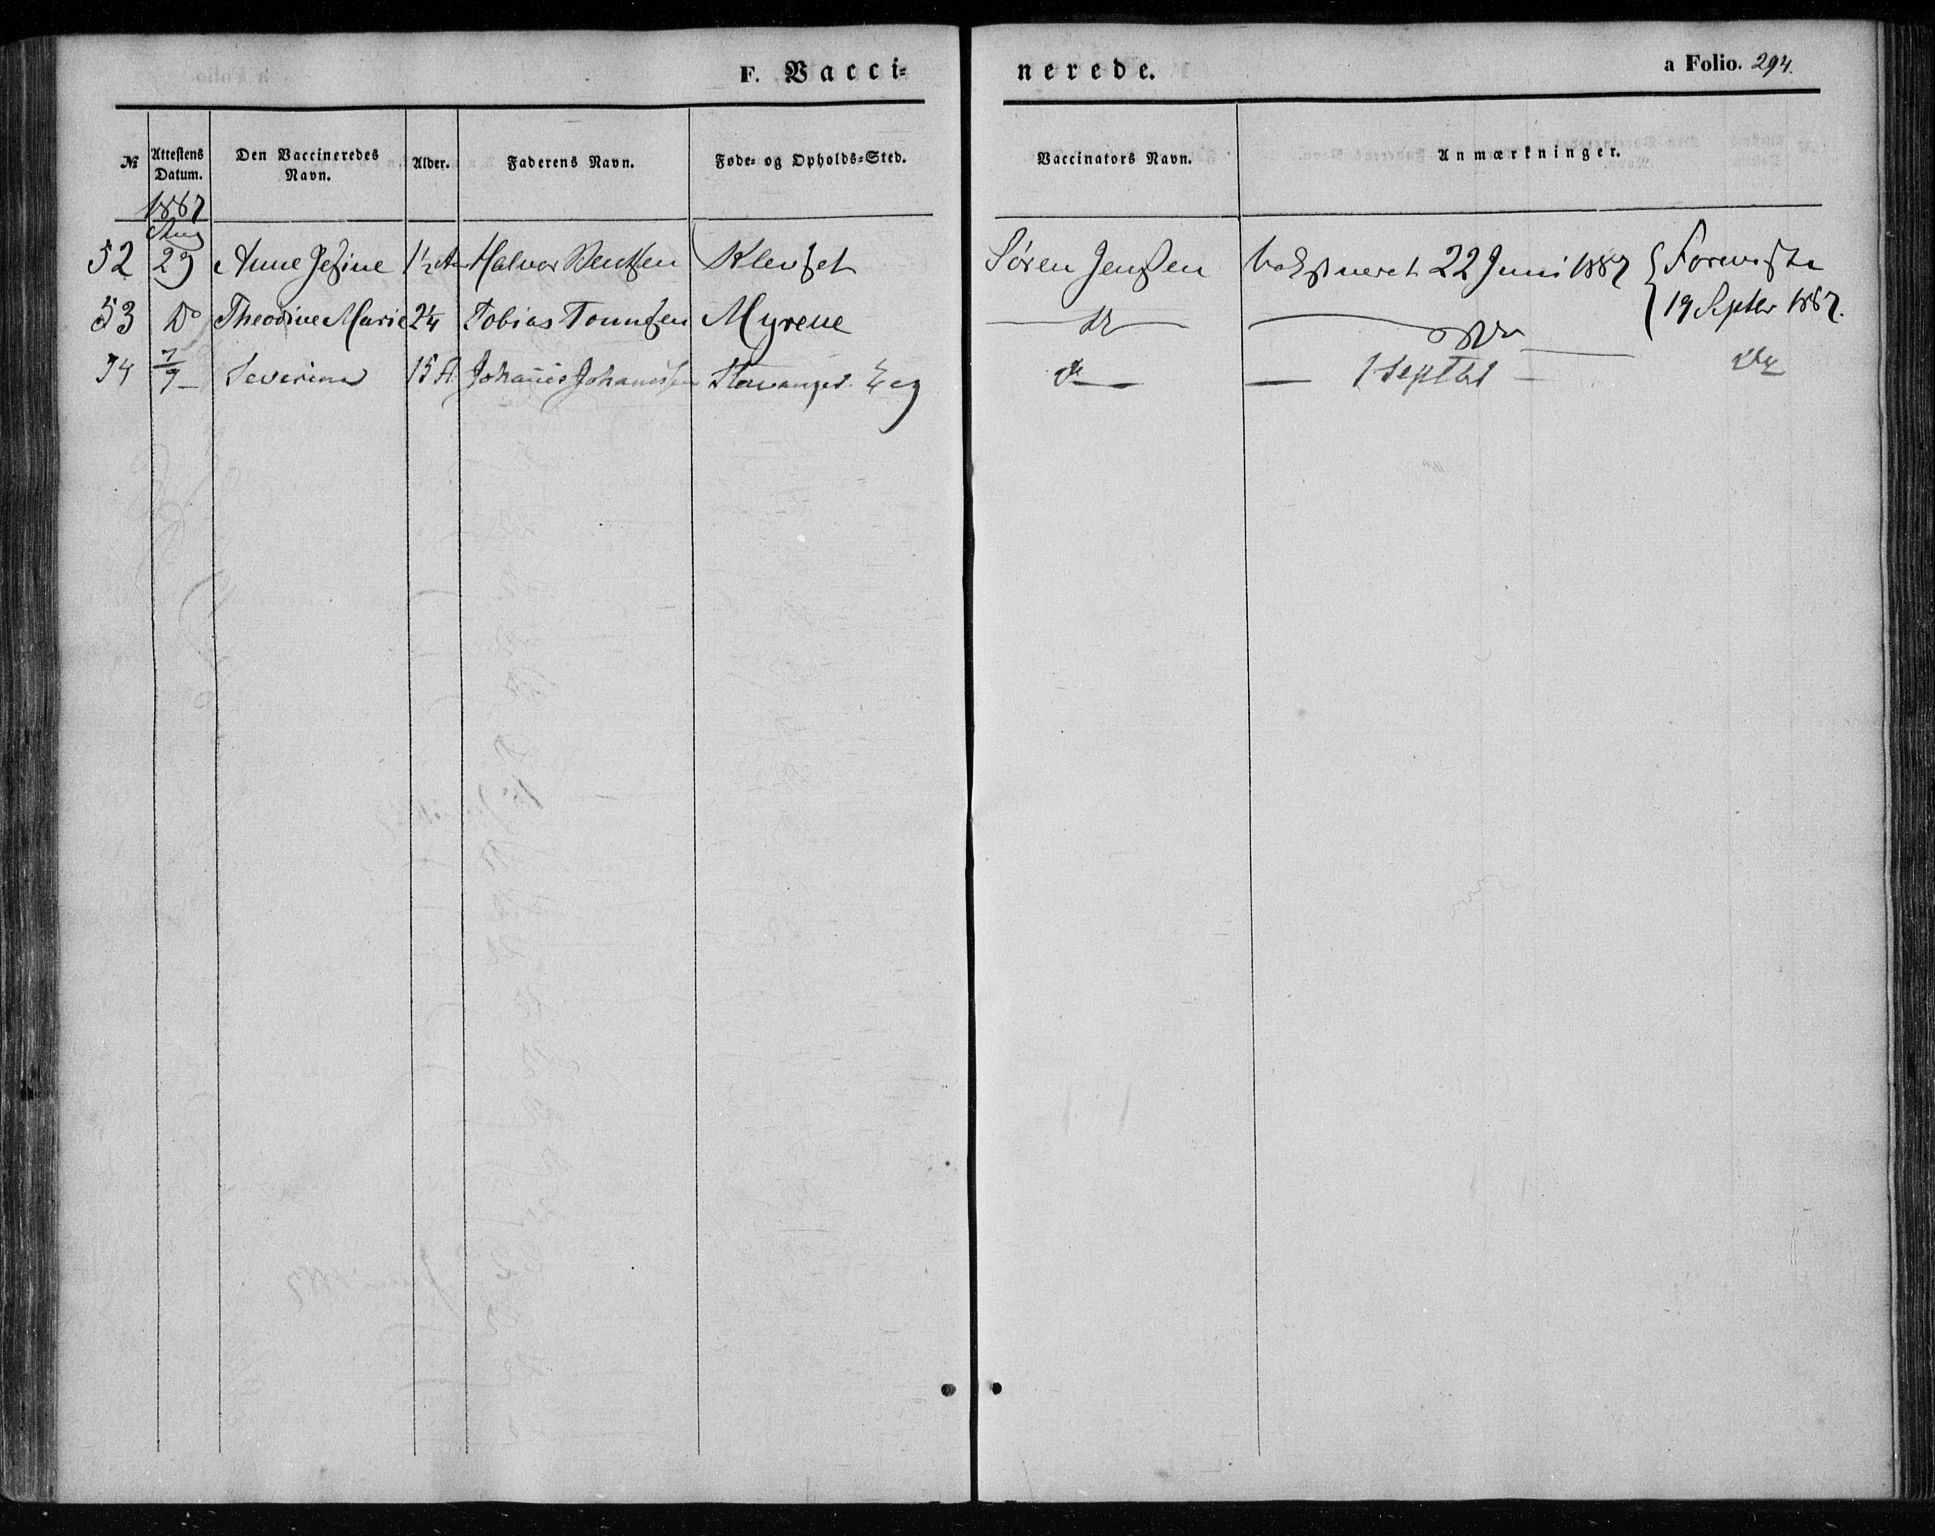 F. Vacci= nerede.
a Folio. 294.
№ Attestens Datum. Den Vaccineredes Navn. Alder. Faderens Navn. Føde- og Opholds-Sted. Vaccinators Navn. Anmærkninger.
1867
Aug
52 29 Anne Jesine 1½ A Halvor Bentsen Klevset Søren Jensen 22 Juni 1867 { Foreviste
53 Do Theodine Marie 2¼ Tobias Tonnesen Myrene 19 Septbr 1867.
54 7/9 Severine 15 A Johannes Johannessen Stavanger Eeg 1 Septbr